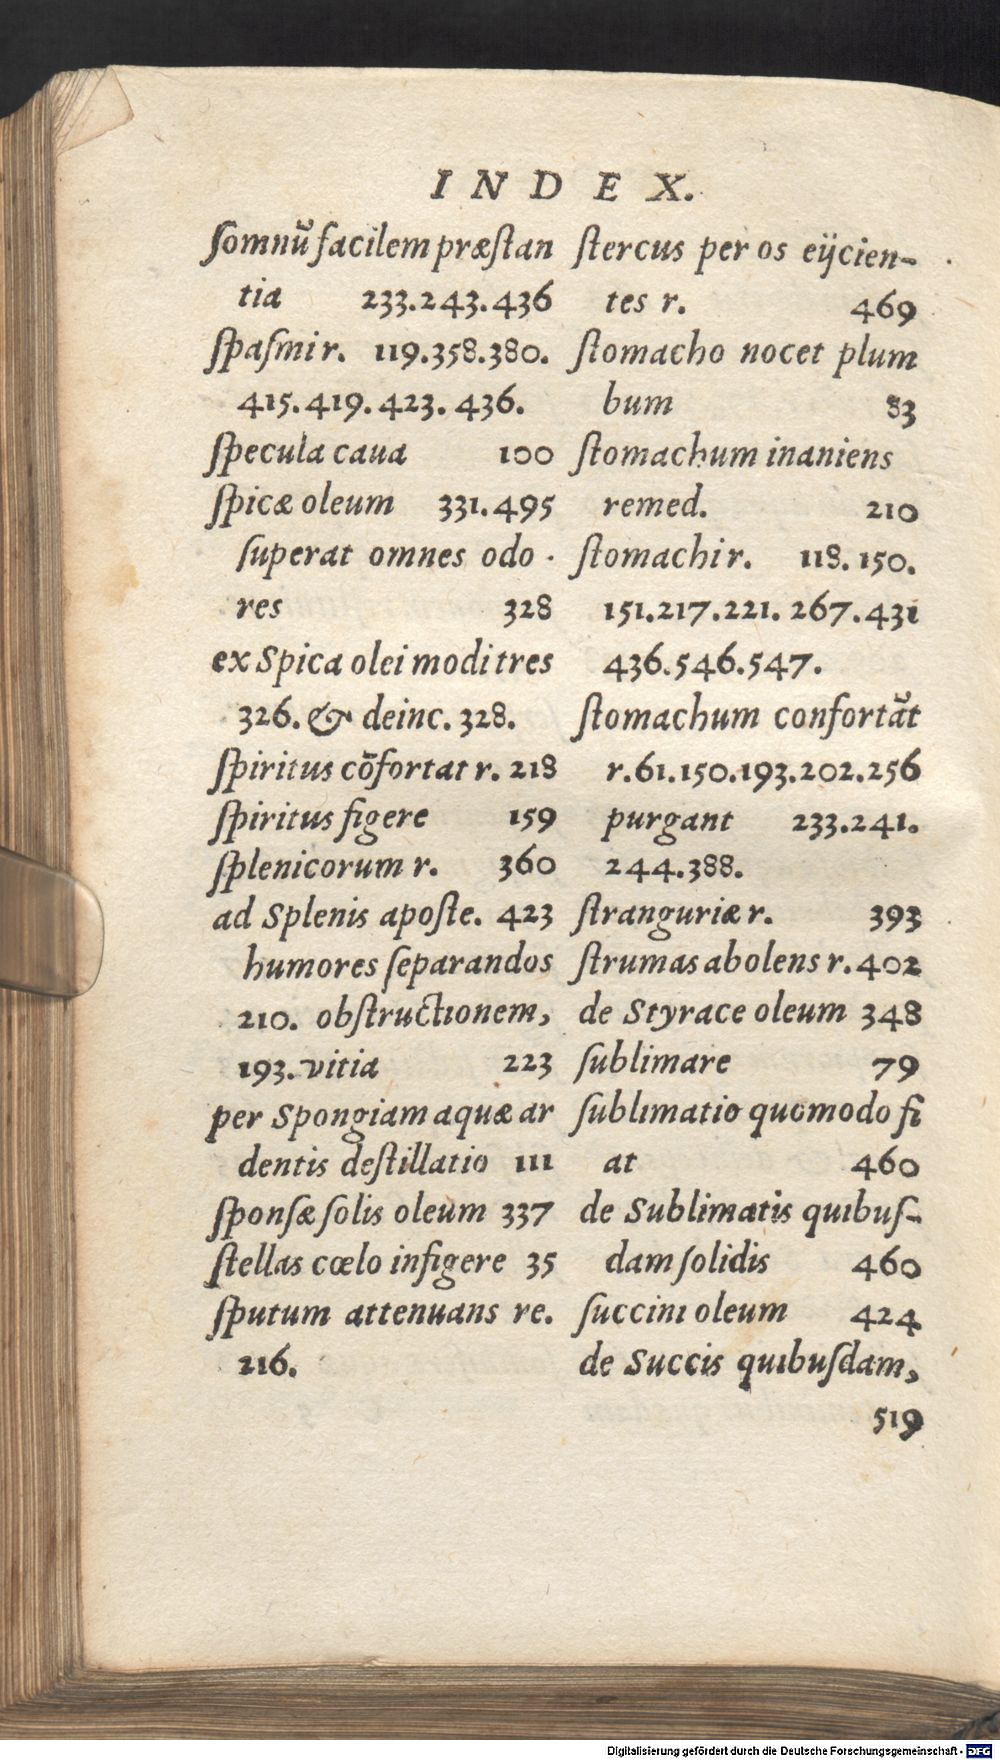 INDEX.
ſomnũ facilem præſtan
tia 233.243.436
ſpaſmi r. 119.358.380.
415.419.423.436.
ſpecula caua 100
ſpicæ oleum 331.495
ſuperat omnes odo-
res 328
ex Spica olei modi tres
326. & deinc. 328.
ſpiritus cõfortat r. 218
ſpiritus figere 159
ſplenicorum r. 360
ad Splenis apoſte. 423
humores ſeparandos
210. obſtructionem,
193. vitia 223
per Spongiam aquæ ar
dentis deſtillatio 111
ſponſæ ſolis oleum 337
ſtellas cœlo infigere 35
ſputum attenuans re.
216.
ſtercus per os eijcien-
tes r. 469
ſtomacho nocet plum
bum 83
ſtomachum inaniens
remed. 210
ſtomachi r. 118.150.
151.217.221.267.431
436.546.547.
ſtomachum confortãt
r.61.150.193.202.256
purgant 233.241.
244.388.
ſtranguriæ r. 393
ſtrumas abolens r. 402
de Styrace oleum 348
ſublimare 79
ſublimatio quomodo fi
at 460
de Sublimatis quibuſ-
dam ſolidis 460
ſuccini oleum 424
de Succis quibuſdam,
519
Digitalisierung gefördert durch die Deutsche Forschungsgemeinschaft - DFG